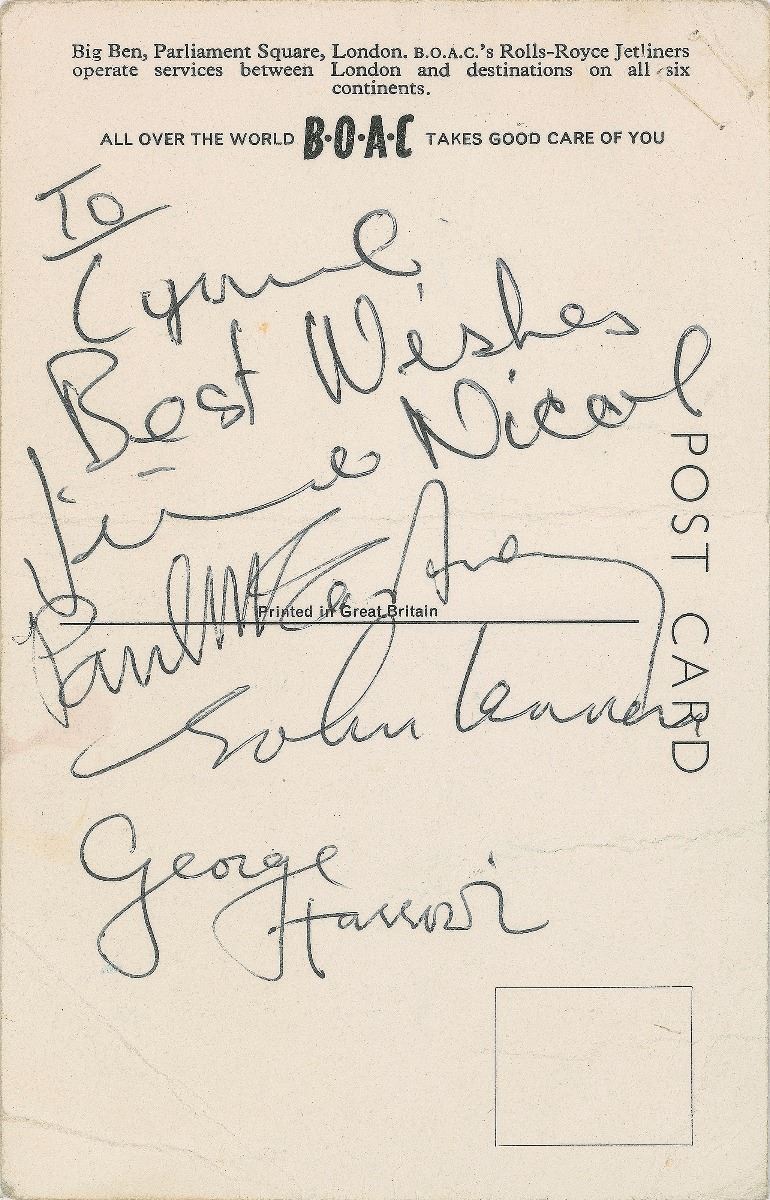 Big Ben, Parliament Square, London. B.O.A.C.'s Rolls-Royce Jetliners
operate services between London and destinations on all six
continents.
ALL OVER THE WORLD B·O·A·C TAKES GOOD CARE OF YOU
To
Best Wishes
Jimmie Nicol
Paul McCartney
Printed in Great Britain
John Lennon
George
Harrison
POST CARD